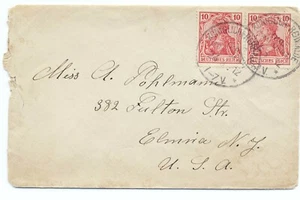 10 10 10 10
DEUTSCHES REICH DEUTSCHES REICH
Miss A. Pohlmann
382 Fulton Str.
Elmira N. Y.
U. S. A.